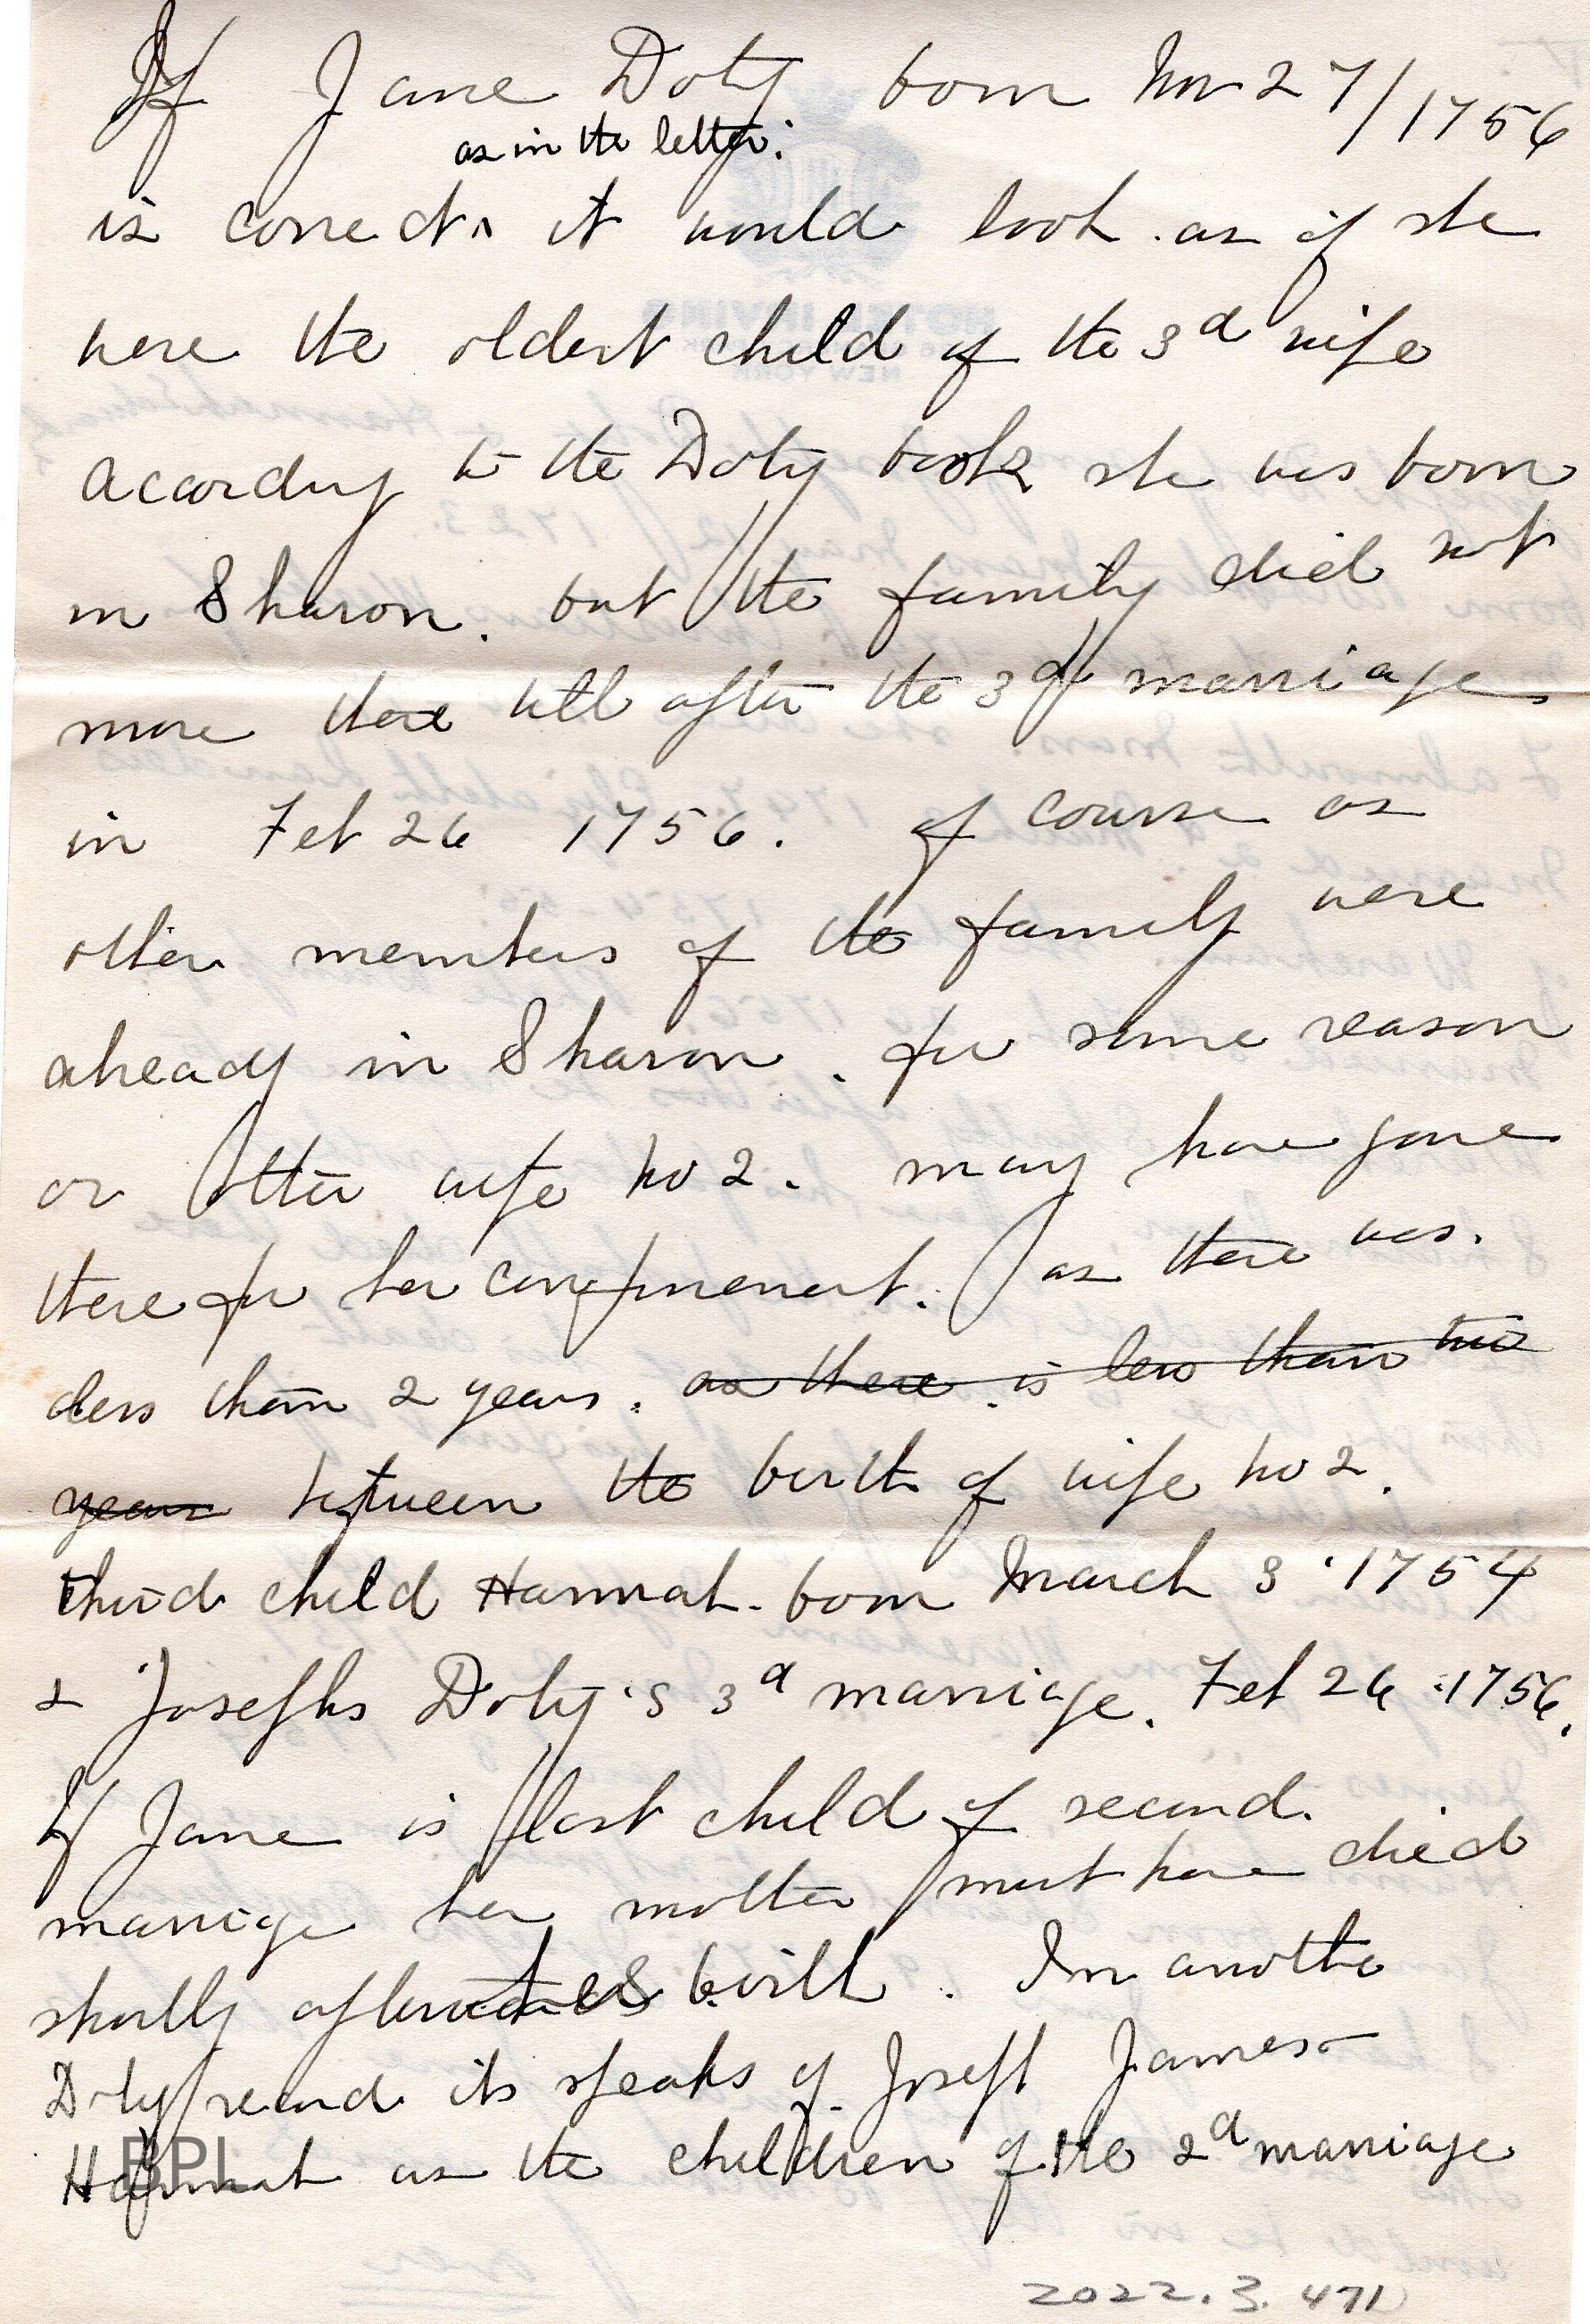 If Jane Doty born Nov 27/1756
as in the letter.
is correct ^ it would look as if she
were the oldest child of the 3d wife
acording to the Doty book she was born
in Sharon. but the family did not
move there till after the 3d marriage
in Feb 26 1756. of course as
other members of the family were
already in Sharon. for some reason
or other wife no 2. may have gone
there for her confinement. as there was.
less than 2 years. as there is less than two
years between the birth of wife no 2.
third child Hannah. born March 3 1754
& Josephs Doty's 3d marriage. Feb 26 1756.
If Jane is last child of second.
marriage her mother must have died
shortly after birth. In another
Doty record its speaks of Joseph James &
Hannah as the children of the 2d marriage
BPL
2022.3.471